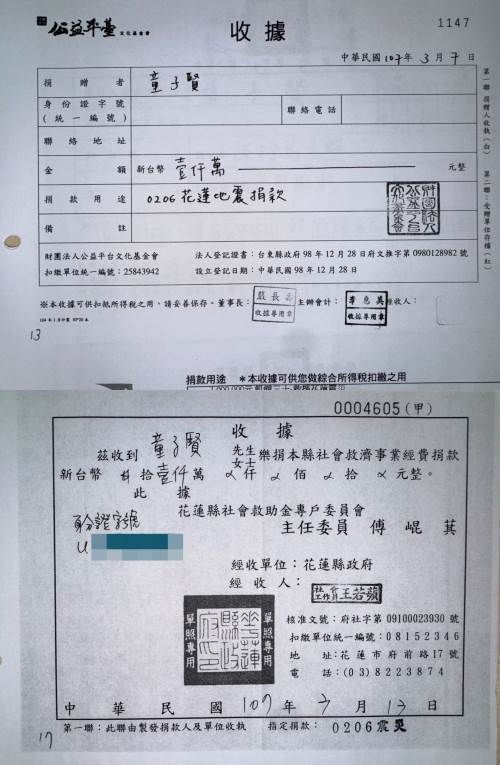 公益平臺 文化基金會
收據
1147
中華民國107年3月7日
捐贈者 童子賢
身份證字號
(統一編號)
聯絡電話
聯絡地址
金額 新台幣 壹仟萬 元整
捐款用途 0206花蓮地震捐款
備註
第一聯：捐贈人收執（白） 第二聯：受贈單位存檔（紅）
財團法人公益平台文化基金會
扣繳單位統一編號：25843942
法人登記證書：台東縣政府98年12月28日府文推字第0980128982號
設立登記日期：中華民國98年12月28日
※本收據可供扣抵所得稅之用，請妥善保存。董事長： 嚴長壽 收據專用章 主辦會計： 收據專用章 經收人：
13
捐款用途 ＊本收據可供您做綜合所得稅扣繳之用
0004605(甲)
收據
茲收到 童子賢 先生 女士 樂捐本縣社會救濟事業經費捐款
新台幣 拾壹仟萬 仟 佰 拾 元整。
此據
花蓮縣社會救助金專戶委員會
主任委員 傅崐萁
身分證字號
U
經收單位：花蓮縣政府
經收人： 王若蘋
單照專用
單照專用
核准文號：府社字第09100023930號
扣繳單位統一編號：08152346
地址：花蓮市府前路17號
電話：(03)8223874
中華民國107年3月13日
17
第一聯：此聯由製發捐款人及單位收執 指定捐款： 0206震災